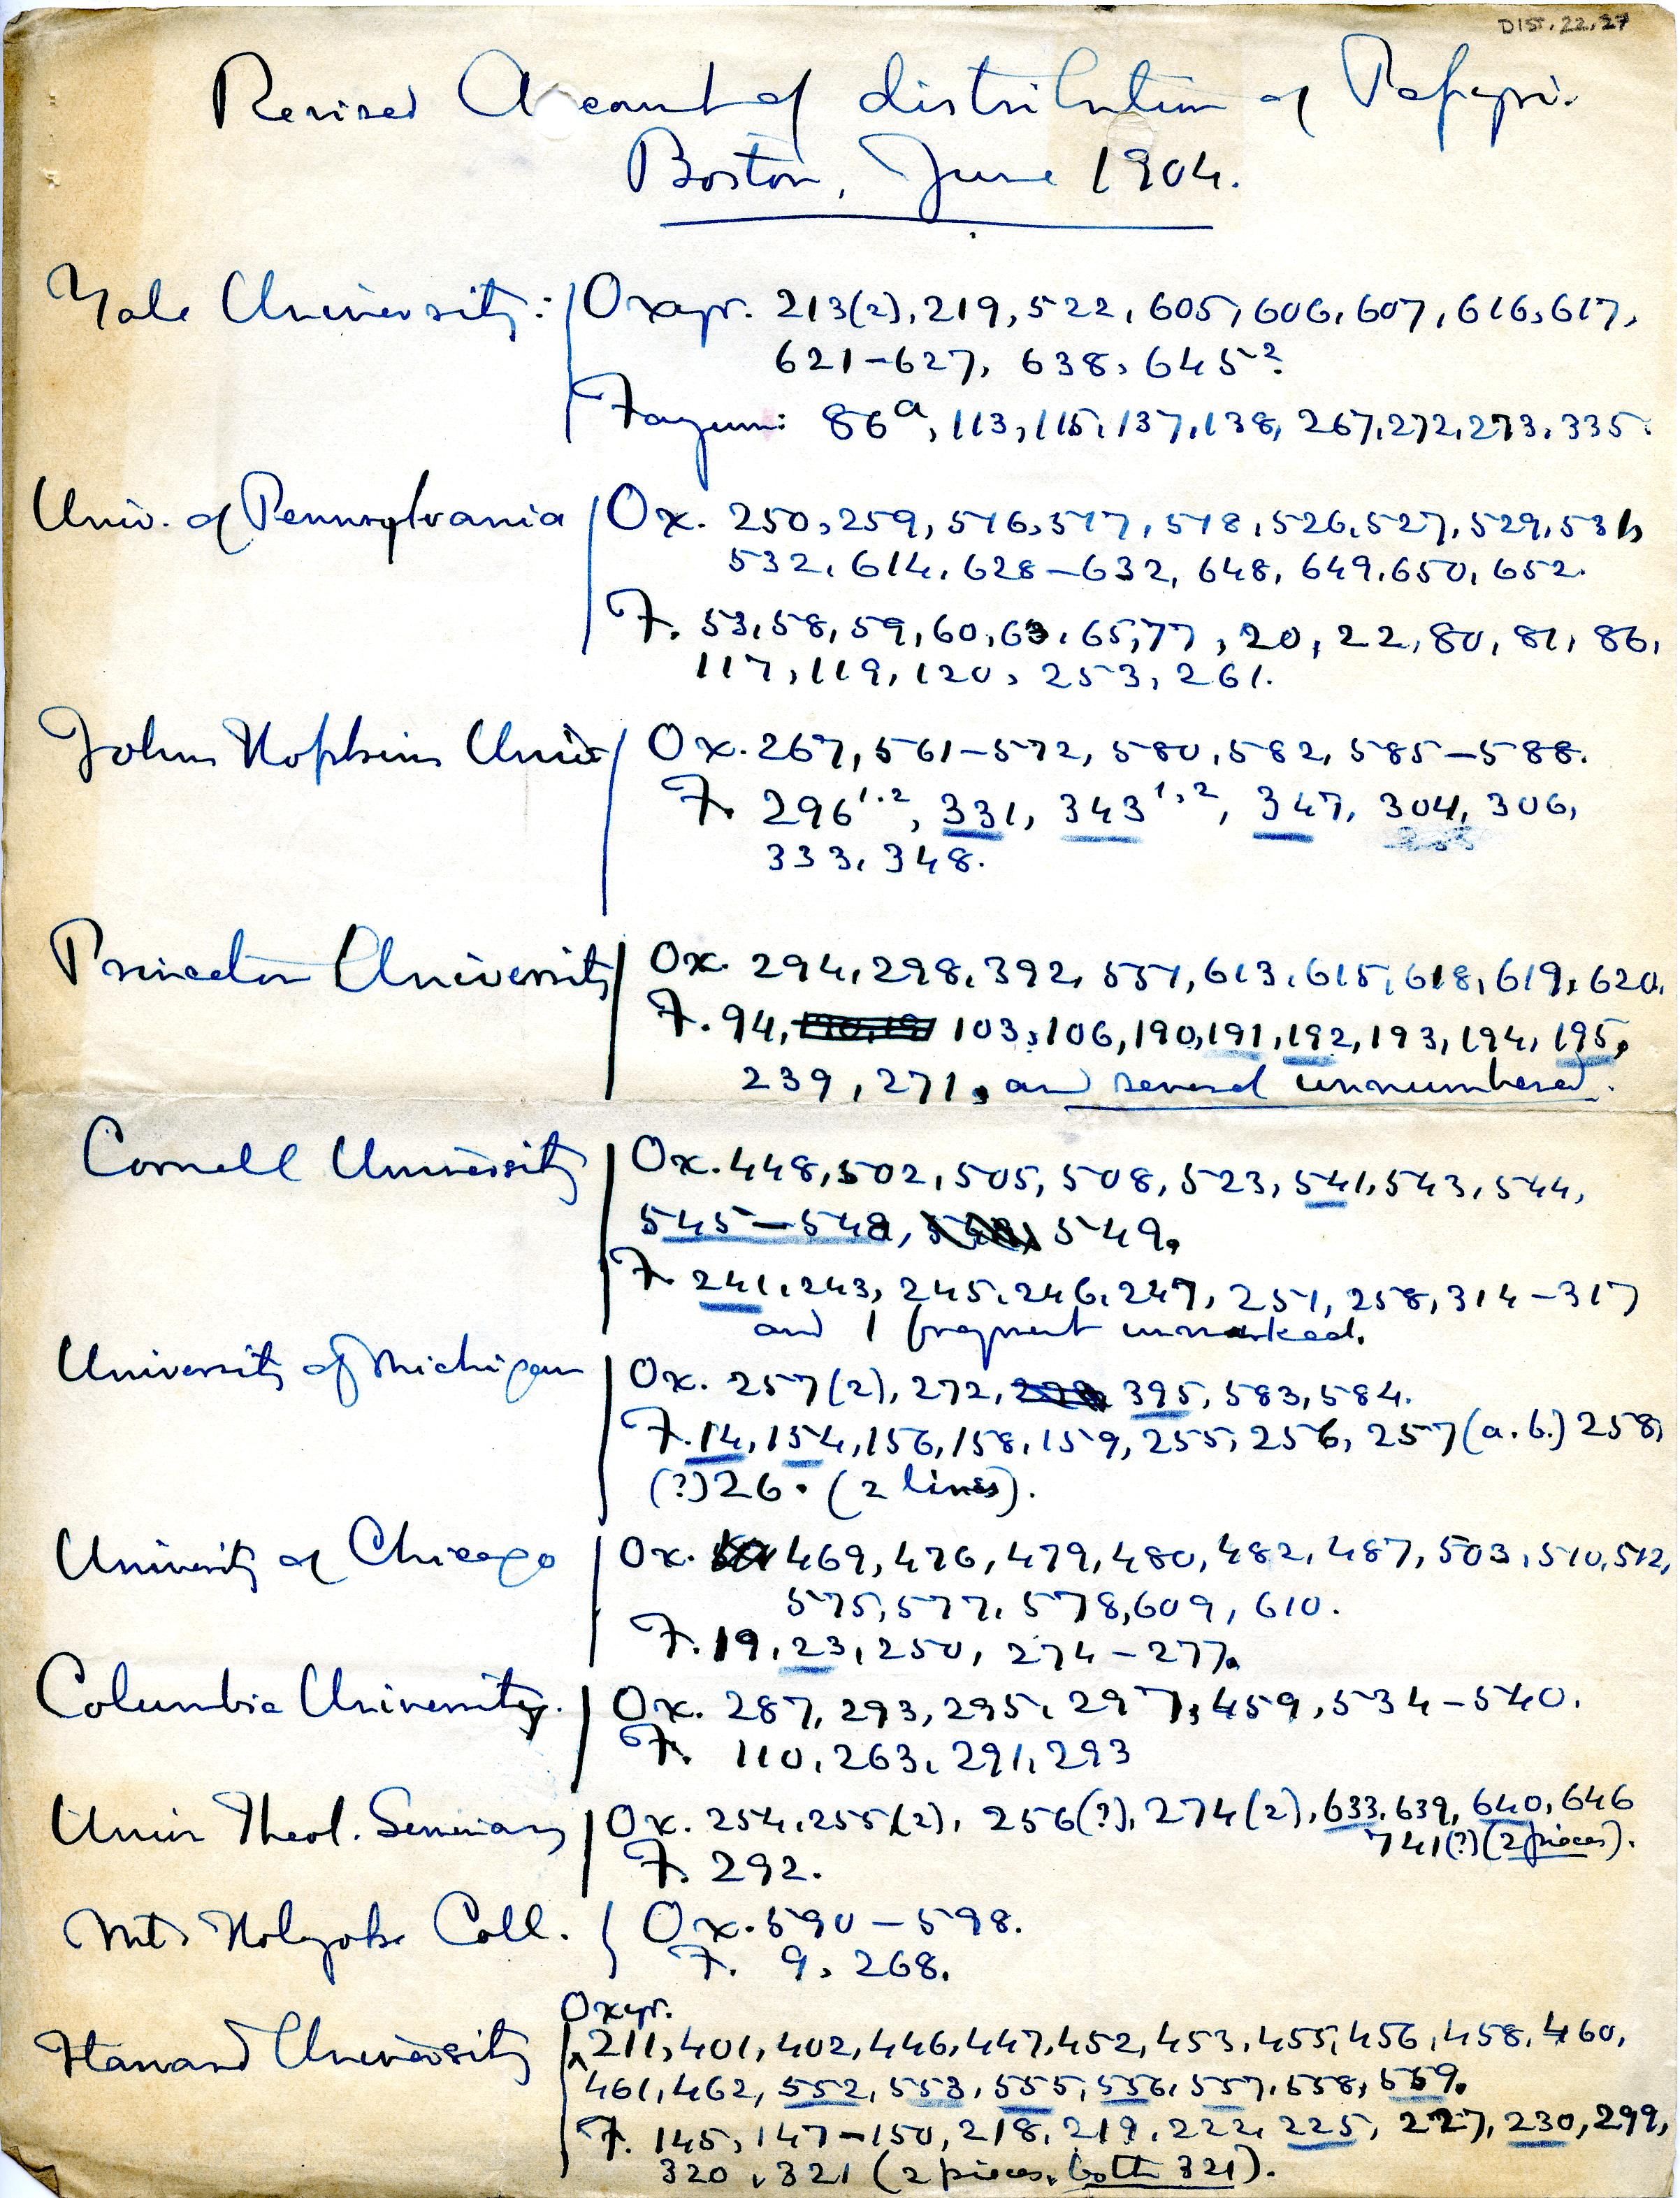 DIST. 22.27
Revised Account of distribution of Papyri.
Boston, June 1904.
Yale University: Oxyr. 213(2), 219, 522, 605, 606, 607, 616, 617,
621–627, 638, 645²
Fayum: 86a, 113, 115, 137, 138, 267, 272, 273, 335.
Univ. of Pennsylvania Ox. 250, 259, 516, 517, 518, 526, 527, 529, 531,
532, 614, 628–632, 648, 649, 650, 652.
F. 53, 58, 59, 60, 63, 65, 77, 20, 22, 80, 81, 86,
117, 119, 120, 253, 261.
Johns Hopkins Univ Ox. 267, 561–572, 580, 582, 585–588.
F. 296 1.2, 331, 343 1,2, 347, 304, 306,
333, 348.
Princeton University Ox. 294, 298, 392, 551, 613, 615, 618, 619, 620,
F. 94, 103, 106, 190, 191, 192, 193, 194, 195,
239, 271, and several unnumbered.
Cornell University Ox. 448, 502, 505, 508, 523, 541, 543, 544,
545–548, 549.
F. 241, 243, 245, 246, 247, 251, 258, 314–317
and 1 fragment unmarked.
University of Michigan Ox. 257(2), 272, 395, 583, 584.
F. 14, 154, 156, 158, 159, 255, 256, 257(a.b.) 258,
(?)26. (2 lines).
University of Chicago Ox. 469, 476, 479, 480, 482, 487, 503, 510, 512,
575, 577, 578, 609, 610.
F. 19, 23, 250, 274–277.
Columbia University. Ox. 287, 293, 295, 297, 459, 534–540.
F. 110, 263, 291, 293
Union Theol. Seminary Ox. 254, 255(2), 256(?), 274(2), 633, 639, 640, 646
741(?)(2 pieces).
F. 292.
Mt. Holyoke Coll. Ox. 590–598.
F. 9, 268.
Oxyr.
Harvard University 211, 401, 402, 446, 447, 452, 453, 455, 456, 458, 460,
461, 462, 552, 553, 555, 556, 557, 558, 559.
F. 145, 147–150, 218, 219, 222, 225, 227, 230, 299,
320, 321 (2 pieces, both 321).